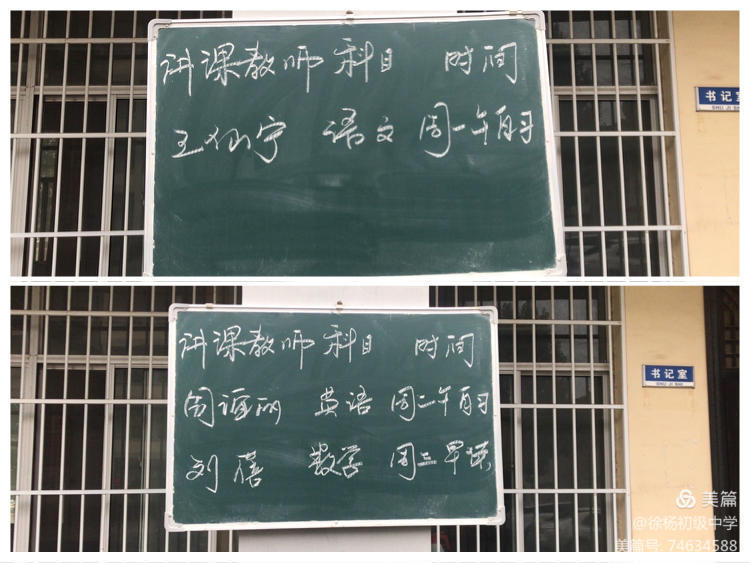 讲课教师 科目 时间
语文 周一午自习
书记室
SHU JI SHI
讲课教师 科目 时间
周谊丽 英语 周二午自习
刘蓓 数学 周三早读
书记室
SHU JI SHI
美篇
@徐杨初级中学
美篇号: 74634588